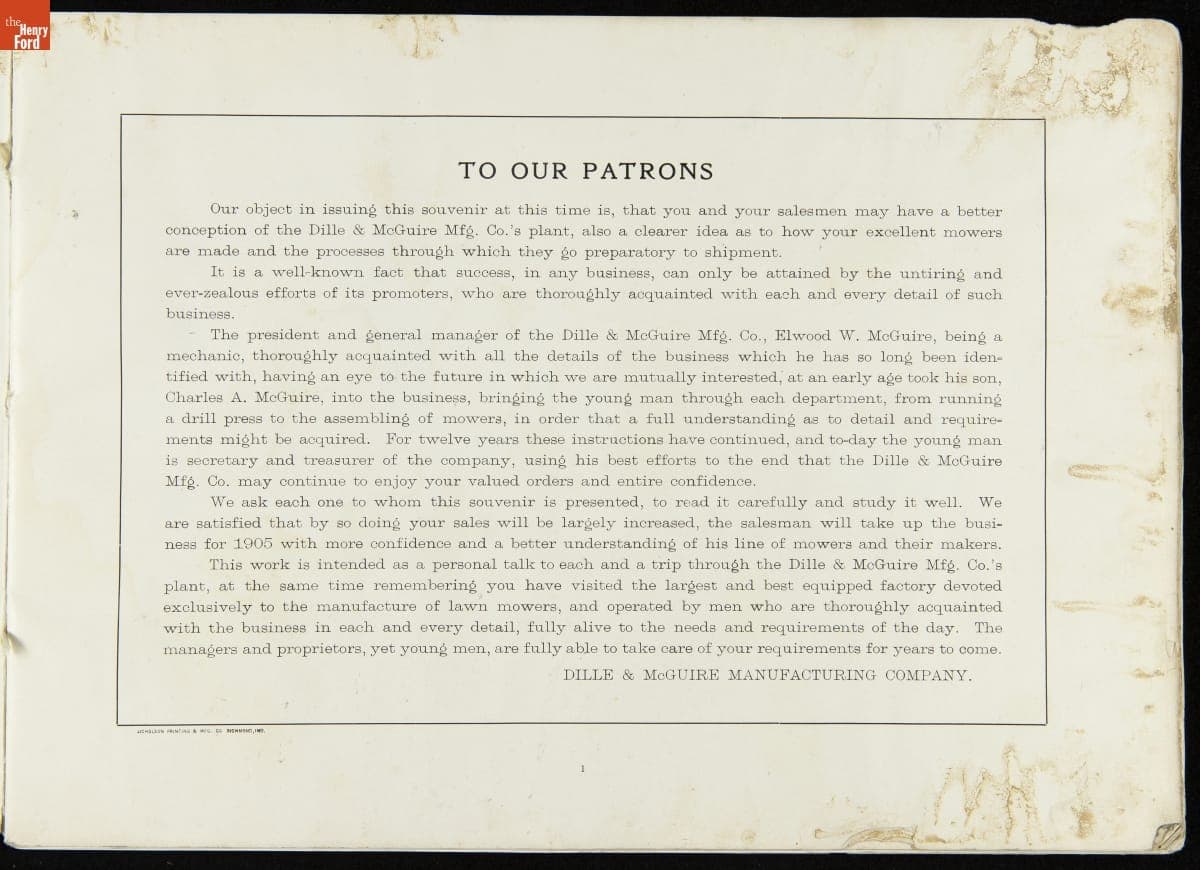 the
Henry
Ford
TO OUR PATRONS
Our object in issuing this souvenir at this time is, that you and your salesmen may have a better
conception of the Dille & McGuire Mfg. Co.'s plant, also a clearer idea as to how your excellent mowers
are made and the processes through which they go preparatory to shipment.
It is a well-known fact that success, in any business, can only be attained by the untiring and
ever-zealous efforts of its promoters, who are thoroughly acquainted with each and every detail of such
business.
The president and general manager of the Dille & McGuire Mfg. Co., Elwood W. McGuire, being a
mechanic, thoroughly acquainted with all the details of the business which he has so long been iden-
tified with, having an eye to the future in which we are mutually interested, at an early age took his son,
Charles A. McGuire, into the business, bringing the young man through each department, from running
a drill press to the assembling of mowers, in order that a full understanding as to detail and require-
ments might be acquired. For twelve years these instructions have continued, and to-day the young man
is secretary and treasurer of the company, using his best efforts to the end that the Dille & McGuire
Mfg. Co. may continue to enjoy your valued orders and entire confidence.
We ask each one to whom this souvenir is presented, to read it carefully and study it well. We
are satisfied that by so doing your sales will be largely increased, the salesman will take up the busi-
ness for 1905 with more confidence and a better understanding of his line of mowers and their makers.
This work is intended as a personal talk to each and a trip through the Dille & McGuire Mfg. Co.'s
plant, at the same time remembering you have visited the largest and best equipped factory devoted
exclusively to the manufacture of lawn mowers, and operated by men who are thoroughly acquainted
with the business in each and every detail, fully alive to the needs and requirements of the day. The
managers and proprietors, yet young men, are fully able to take care of your requirements for years to come.
DILLE & McGUIRE MANUFACTURING COMPANY.
NICHOLSON PRINTING & MFG. CO. RICHMOND, IND.
1